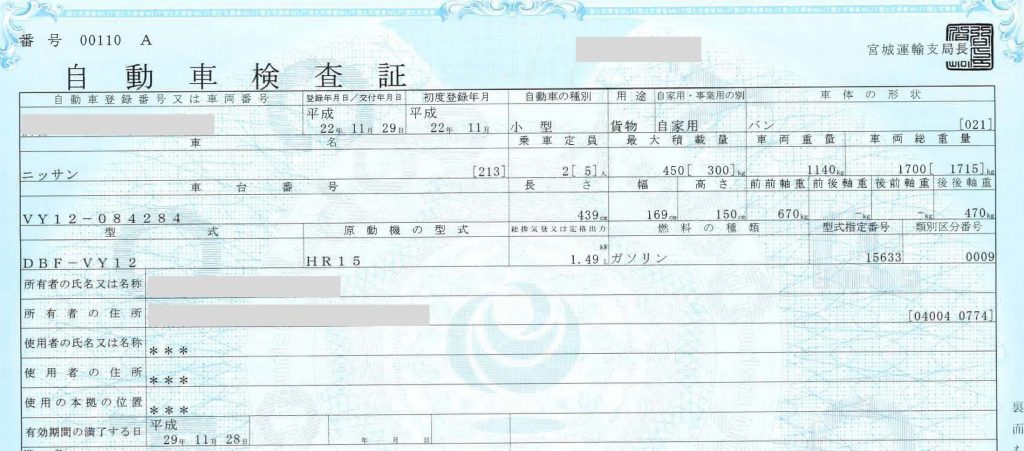 番号 00110 A
宮城運輸支局長
自動車検査証
自動車登録番号又は車両番号 登録年月日/交付年月日 初度登録年月 自動車の種別 用途 自家用・事業用の別 車体の形状
平成 22年 11月 29日 平成 22年 11月 小型 貨物 自家用 バン [021]
車名 乗車定員 最大積載量 車両重量 車両総重量
ニッサン [213] 2[ 5]人 450[ 300]kg 1140kg 1700[ 1715]kg
車台番号 長さ 幅 高さ 前前軸重 前後軸重 後前軸重 後後軸重
VY12-084284 439cm 169cm 150cm 670kg -kg -kg 470kg
型式 原動機の型式 総排気量又は定格出力 燃料の種類 型式指定番号 類別区分番号
DBF-VY12 HR15 1.49 kW L ガソリン 15633 0009
所有者の氏名又は名称
所有者の住所 [04004 0774]
使用者の氏名又は名称 ***
使用者の住所 ***
使用の本拠の位置 ***
有効期間の満了する日 平成 29年 11月 28日 年 月 日
裏
面